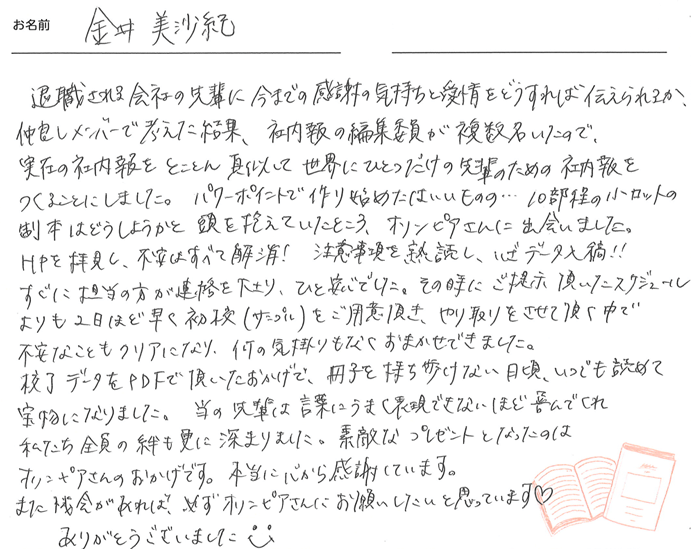 お名前 金井 美沙紀
退職される会社の先輩に今までの感謝の気持ちと愛情をどうすれば伝えられるか、
仲良しメンバーで考えた結果、社内報の編集委員が複数名いたので、
実在の社内報をとことん真似して世界にひとつだけの先輩のための社内報を
つくることにしました。パワーポイントで作り始めたはいいものの…10部程の小ロットの
製本はどうしようかと頭を抱えていたところ、オリンピアさんに出会いました。
HPを拝見し、不安はすべて解消! 注意事項を熟読し、いざデータ入稿!!
すぐに担当の方が連絡を下さり、ひと安心でした。その時にご提示頂いたスケジュール
よりも2日ほど早く初校(サンプル)をご用意頂き、やり取りをさせて頂く中で
不安なこともクリアになり、何の気掛りもなくおまかせできました。
校了データをPDFで頂いたおかげで、冊子を持ち歩けない日頃、いつでも読めて
宝物になりました。当の先輩は言葉にうまく表現できないほど喜んでくれ
私たち全員の絆も更に深まりました。素敵なプレゼントとなったのは
オリンピアさんのおかげです。本当に心から感謝しています。
また機会があれば、必ずオリンピアさんにお願いしたいと思っています♡
ありがとうございました